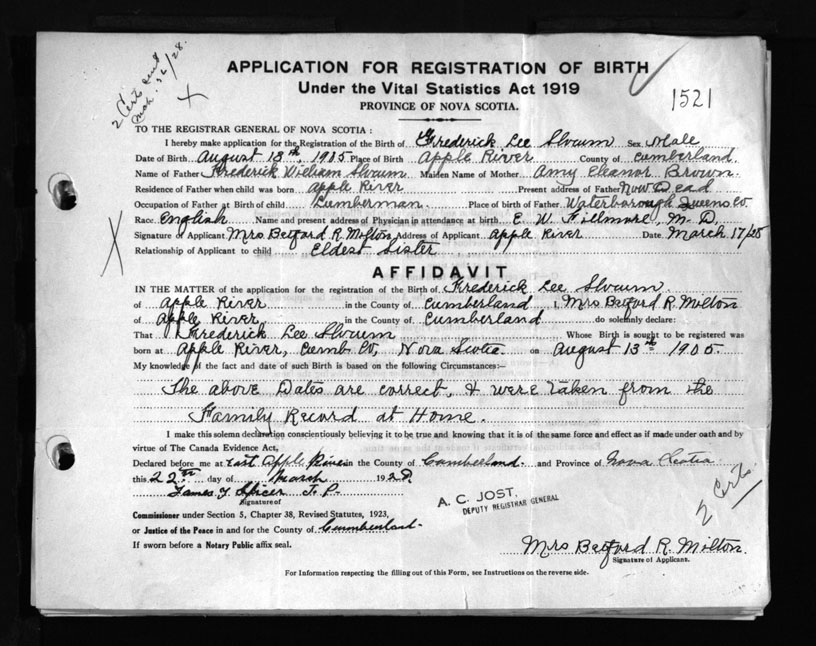 2 Certs sent
Mch. 26/28.
APPLICATION FOR REGISTRATION OF BIRTH
Under the Vital Statistics Act 1919
1521
PROVINCE OF NOVA SCOTIA.
TO THE REGISTRAR GENERAL OF NOVA SCOTIA:
I hereby make application for the Registration of the Birth of Frederick Lee Slocum Sex Male
Date of Birth August 18th, 1905 Place of Birth Apple River County of Cumberland
Name of Father Frederick William Slocum Maiden Name of Mother Amy Eleanor Brown
Residence of Father when child was born Apple River Present address of Father Now Dead
Occupation of Father at Birth of child Lumberman. Place of birth of Father Waterborough Queens Co.
Race English Name and present address of Physician in attendance at birth E. W. Fillmore, M. D.
Signature of Applicant Mrs Betford R. Milton Address of Applicant Apple River Date March 17/28
Relationship of Applicant to child Eldest Sister
AFFIDAVIT
IN THE MATTER of the application for the registration of the Birth of Frederick Lee Slocum
of Apple River in the County of Cumberland I, Mrs Betford R. Milton
of Apple River, in the County of Cumberland do solemnly declare:
That Frederick Lee Slocum Whose Birth is sought to be registered was
born at Apple River, Cumb Co, Nova Scotia on August 13th 1905.
My knowledge of the fact and date of such Birth is based on the following Circumstances:—
The above Dates are correct, & were taken from the
Family Record at Home.
I make this solemn declaration conscientiously believing it to be true and knowing that it is of the same force and effect as if made under oath and by
virtue of The Canada Evidence Act,
Declared before me at East Apple River in the County of Cumberland. and Province of Nova Scotia
this 22nd day of March 1928.
James Y. Spicer J. P.
Signature of
A. C. JOST,
DEPUTY REGISTRAR GENERAL
2 Certs.
Commissioner under Section 5, Chapter 38, Revised Statutes, 1923,
or Justice of the Peace in and for the County of Cumberland.
If sworn before a Notary Public affix seal.
Mrs Betford R. Milton.
Signature of Applicant.
For Information respecting the filling out of this Form, see Instructions on the reverse side.